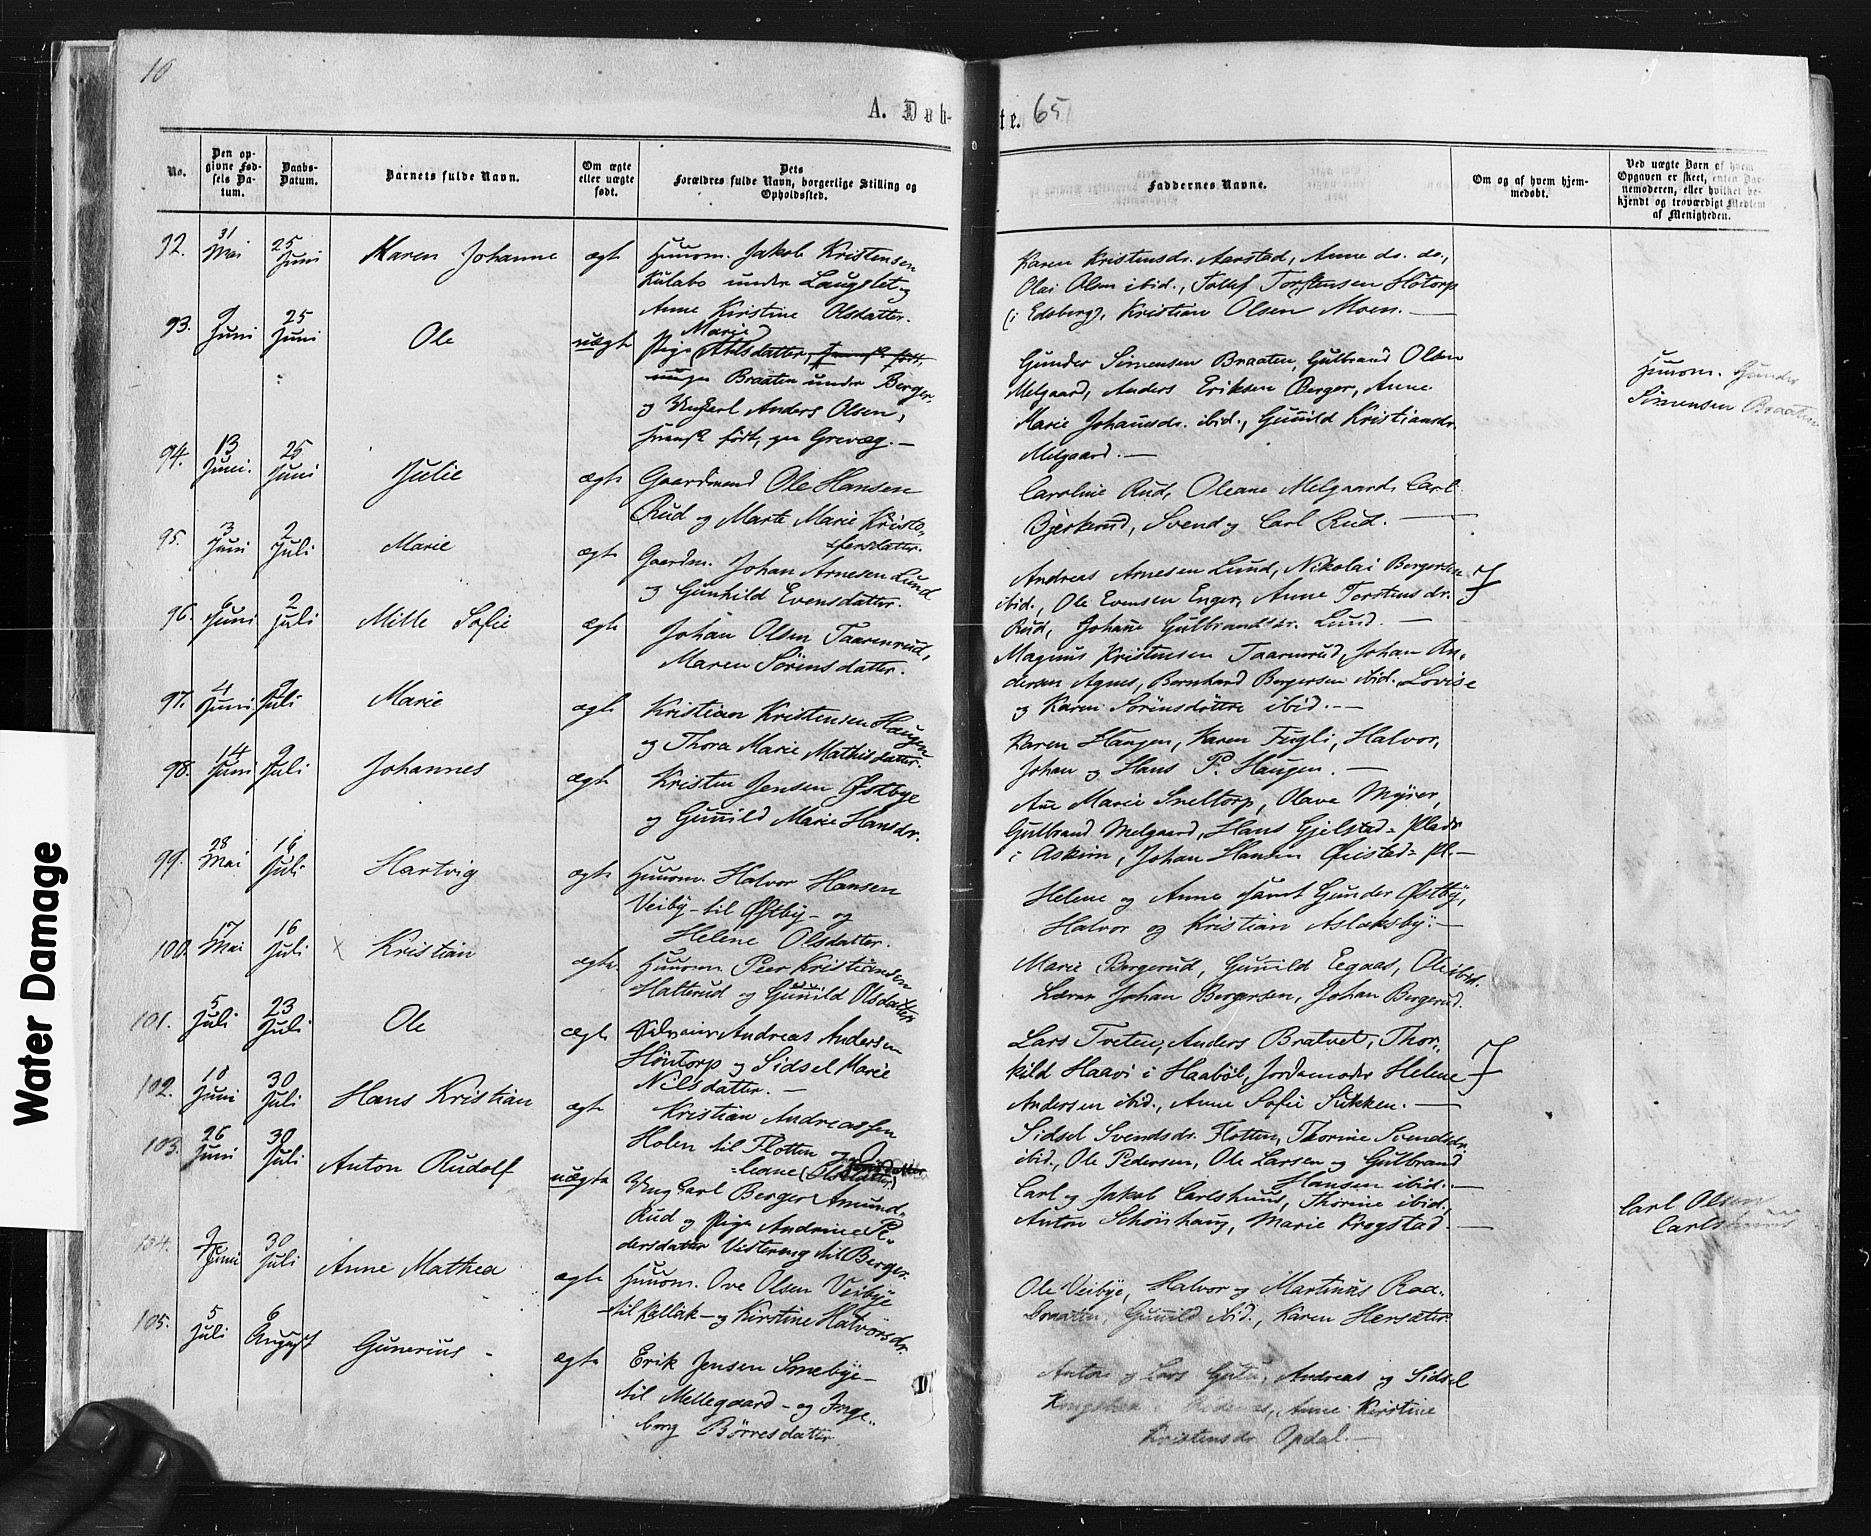 10
A. Døb-
te. 65
No.
Den op-
givne Fød-
sels Da-
tum.
Daabs-
Datum.
Barnets fulde Navn.
Om ægte
eller uægte
født.
Dets
Forældres fulde Navn, borgerlige Stilling og
Opholdssted.
Faddernes Navne.
Om og af hvem hjem-
medøbt.
Ved uægte Børn af hvem
Opgaven er skeet, enten Bar-
nemoderen, eller hvilket be-
kjendt og troværdigt Medlem
af Menigheden.
92. 31 Mai 25 Juni Karen Johanne ægte
Huusm. Jakob Kristensen
Kulabo under Laugslet og
Anne Kirstine Olsdatter.
Karen Kristensdr. Aarstad, Anne do. do.,
Olai Olsen ibid., Tolluf Torstensen Hötorp
(i Edsberg), Kristian Olsen Moen. —
93. 9 Juni 25 Juni Ole uægte
Marie
Pige Atlsdatter,
Braaten under Berger
og Ungkarl Anders Olsen,
svensk født, paa Grevæg. —
Gunder Simensen Braaten, Gulbrand Olsen
Melgaard, Anders Eriksen Berger, Anne
Marie Johannsdr. ibid., Gunild Kristiansdr.
Melgaard. —
Huusm. Gunder
Simensen Braaten
94. 13 Juni. 25 Juni Julie ægte
Gaardmand Ole Hansen
Rud og Marte Marie Kristo-
fersdatter.
Caroline Rud, Oleane Melgaard, Carl
Bjerkerud, Svend og Carl Rud. —
95. 3 Juni 2 Juli Marie ægte
Gaardm. Johan Arnesen Lund
og Gunhild Evensdatter.
Andreas Arnesen Lund, Nikolai Bergersen
ibid., Ole Evensen Enger, Anne Torstensdr.
Rud, Johanne Gulbrandsdr. Lund. —
96. 6 Juni 2 Juli Mille Sofie ægte
Johan Olsen Taarenrud,
Maren Sörensdatter.
Magnus Kristensen Taarenrud, Johan An-
dersen Agnes, Bernhard Bergersen ibid. Lovise
og Karen Sörensdöttre ibid. —
97. 4 Juni 9 Juli Marie ægte
Kristian Kristensen Haugen
og Thora Marie Mathisdatter.
Karen Haugen, Karen Fugli, Halvor,
Johan og Hans P. Haugen. —
98. 14 Juni 9 Juli Johannes ægte
Kristen Jensen Østbye
og Gunild Marie Hansdr.
Ane Marie Sneltorp, Olave Myrer,
Gulbrand Melgaard, Hans Gjelstad= Plads
i Askim, Johan Hansen Øristad= Pl. —
99. 28 Mai 16 Juli Hartvig ægte
Huusm. Halvor Hansen
Veiby- til Østby- og
Helene Olsdatter.
Helene og Anne samt Gunder Østby,
Halvor og Kristian Aslaksby. —
100. 17 Mai 16 Juli x Kristian ægte
Huusm Peer Kristiansen
Halterud og Gunild Olsdatter
Marie Bergerud, Gunild Eegaas, Ole ibid.
Lærer Johan Bergersen, Johan Bergerud.
101. 5 Juli 23 Juli Ole ægte
Selveier Andreas Andersen
Höntorp og Sidsel Marie
Nilsdatter. —
Lars Tveten, Anders Bratvet, Thor-
kild Haavi i Haabøl, Jordemoder Helene
Andersen ibid., Anne Sofie Sikken. —
102. 18 Juni 30 Juli Hans Kristian ægte
Kristian Andreassen
Holen til Flotten og O-
leane (Olsdatter)
Sidsel Svendsdr. Flotten, Thorine Svendsdr.
ibid., Ole Pedersen, Ole Larsen og Gulbrand
Hansen ibid. —
103. 26 Juni 30 Juli Anton Rudolf uægte
Ungkarl Berger Amund-
Rud og Pige Andrine Pe-
dersdatter Vestereng til Berger.
Carl og Jakob Carlshuus, Thorine ibid.,
Anton Schönhaug, Marie Krogstad. —
Carl Olsen
Carlshuus
104. 7 Juni 30 Juli Anne Mathea ægte
Huusm. Ove Olsen Veibye
til Kallak- og Kirstine Halvorsdr.
Ole Veibye, Halvor og Martinus Rad-
Braaten, Gunild ibid., Karen Hersæter
105. 5 Juli 6 August Gunerius ægte
Erik Jensen Smebye-
til Mellegaard- og Inge-
borg Börresdatter
Anton og Lars Gutu, Andreas og Sidsel
Anne Kirstine
Kristensdr Opdal. —
Water Damage